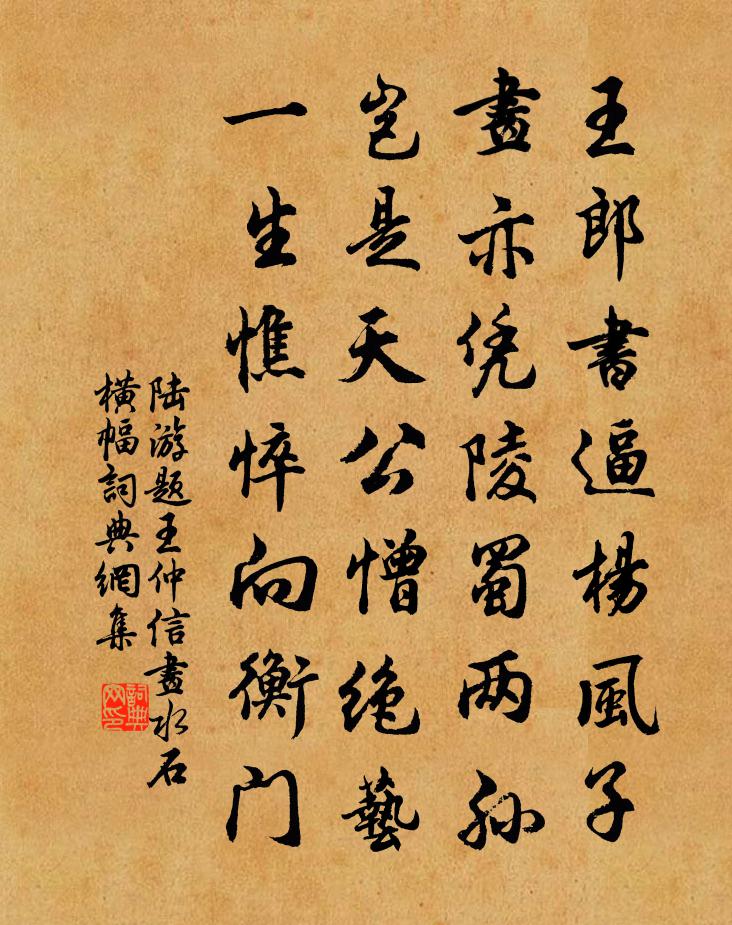 王郎書逼楊風子
畫亦凭陵蜀两孙
岂是天公憎绝藝
一生憔悴向衡门
陆游题王仲信畫水石
横幅詞典網集
詞典
网印